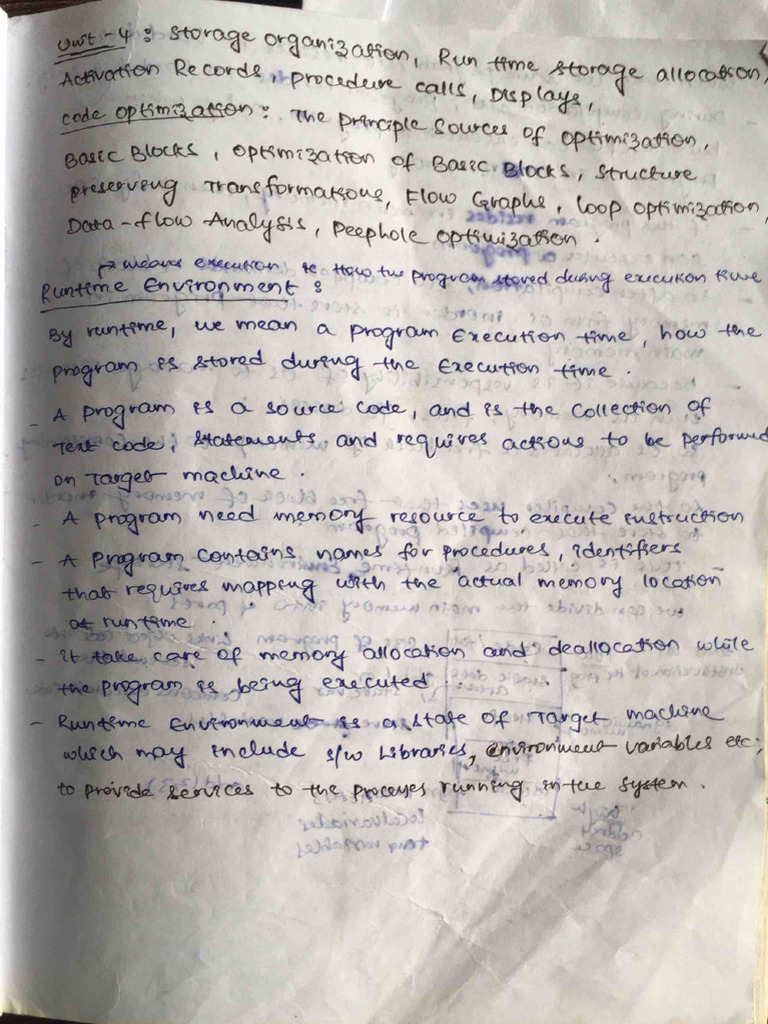 Unit-4 : Storage organization, Run time storage allocation,
Activation Records, procedure calls, Displays,
code optimization : The principle sources of optimization,
Basic Blocks, optimization of Basic Blocks, structure
preserving Transformations, Flow Graphs, loop optimization,
Data-flow Analysis, peephole optimization.
→ means execution ie How the program stored during execution time
Runtime Environment :
By runtime, we mean a program Execution time, how the
program is stored during the Execution time.
- A program is a source code, and is the collection of
Text code, statements and requires actions to be performed
on Target machine.
- A program need memory resource to execute instruction
- A program contains names for procedures, identifiers
that requires mapping with the actual memory location
at runtime.
- it take care of memory allocation and deallocation while
the program is being executed.
- Runtime Environment is a state of Target machine
which may include s/w Libraries, environment variables etc;
to provide services to the processes running in the system.
local variables
temp variables